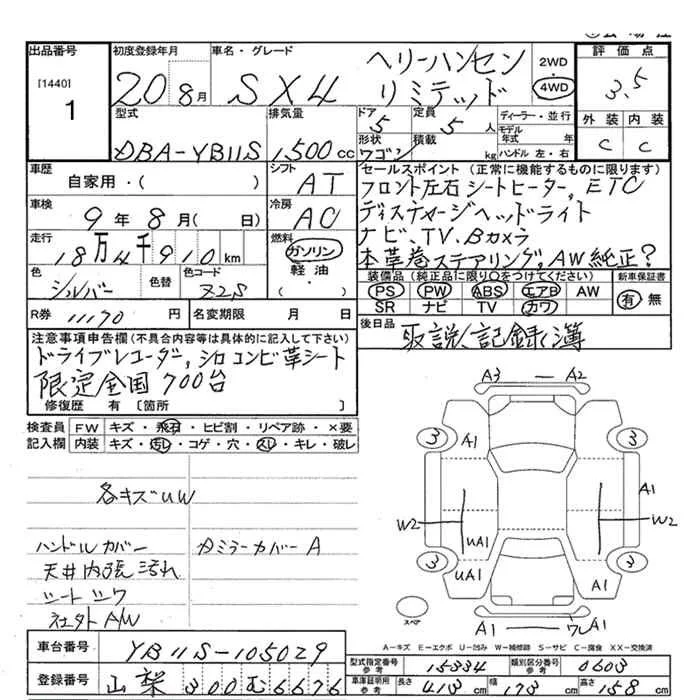 出品番号 初度登録年月 車名・グレード 評価点
[1440]
1
20 8月 SX4 ヘリーハンセン
リミテッド
2WD・
4WD
3.5
型式 排気量 ドア 定員 ディーラー・並行 外装 内装
DBA-YB11S 1,500cc 5 5人 モデル年式 年
形状 積載 kg ハンドル 左・右
ワゴン
C C
車歴 シフト セールスポイント (正常に機能するものに限ります)
自家用・( ) AT フロント左右シートヒーター,ETC
車検 冷房 ディスチャージヘッドライト
9年8月( 日) AC ナビ、TV、Bカメラ
走行 燃料 本革巻ステアリング、AW純正?
18万4千910km ガソリン
軽油・
( )
色 色替 色コード
シルバー Z2S
装備品(純正品に限り○をつけてください) 新車保証書
PS PW ABS エアB AW 有・無
SR ナビ TV カワ
R券 11170円 名変期限 月 日
後日品 取説、記録簿
注意事項申告欄(不具合内容等は具体的に記入して下さい)
ドライブレコーダー,シロコンビ革シート
限定全国700台
修復歴 有 〔箇所 〕
検査員 FW キズ・飛石・ヒビ割・リペア跡・×要
記入欄 内装 キズ・汚レ・コゲ・穴・スレ・キレ・破レ
各キズUW
ハンドルカバー カミラーカバーA
天井内張汚れ
シートシワ
社外AW
A3 — A2
3 A1 3
A1
W2 W2
UA1
3 UA1 A1 3
スペア
A1 — ワレA1
A=キズ E=エクボ U=凹み W=補修跡 S=サビ C=腐食 XX=交換済
車台番号 YB11S-105029
登録番号 山梨 300 む 6676
型式指定番号 参考 15334 類別区分番号 参考 0603
車庫証明用 参考 長さ 413cm 幅 173cm 高さ 158cm